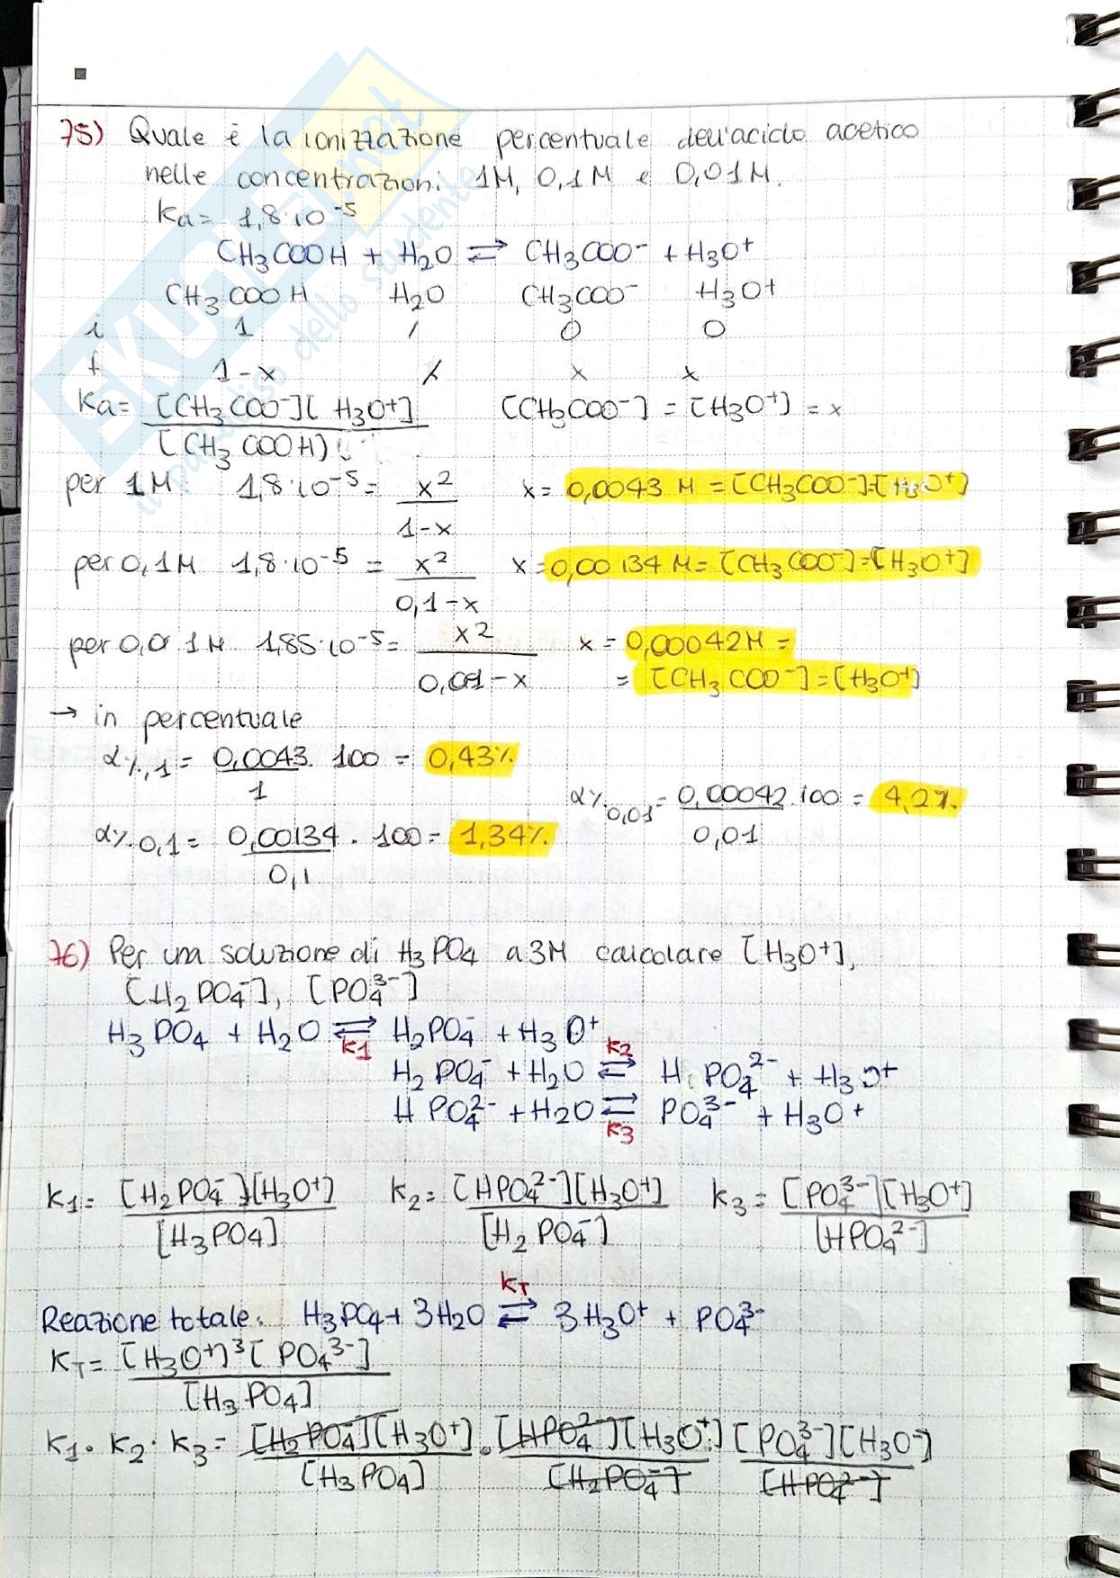 75) Quale è la ionizzazione percentuale dell'acido acetico
nelle concentrazioni 1M, 0,1M e 0,01M.
Ka= 1,8·10⁻⁵
CH₃COOH + H₂O ⇌ CH₃COO⁻ + H₃O⁺
CH₃COOH H₂O CH₃COO⁻ H₃O⁺
i 1 / 0 0
f 1-x / x x
Ka= [CH₃COO⁻][H₃O⁺] / [CH₃COOH] [CH₃COO⁻] = [H₃O⁺] = x
per 1M 1,8·10⁻⁵ = x² / 1-x x = 0,0043 M = [CH₃COO⁻]=[H₃O⁺]
per 0,1M 1,8·10⁻⁵ = x² / 0,1-x x = 0,00134 M = [CH₃COO⁻]=[H₃O⁺]
per 0,01M 1,85·10⁻⁵ = x² / 0,01-x x = 0,00042M =
= [CH₃COO⁻]=[H₃O⁺]
→ in percentuale
α%,1 = 0,0043 / 1 · 100 = 0,43%
α%0,01 = 0,00042 / 0,01 · 100 = 4,2%
α%0,1 = 0,00134 / 0,1 · 100 = 1,34%
76) Per una soluzione di H₃PO₄ a 3M calcolare [H₃O⁺],
[H₂PO₄⁻], [PO₄³⁻]
H₃PO₄ + H₂O ⇌ K1 H₂PO₄⁻ + H₃O⁺
H₂PO₄⁻ + H₂O ⇌ K2 HPO₄²⁻ + H₃O⁺
HPO₄²⁻ + H₂O ⇌ K3 PO₄³⁻ + H₃O⁺
K₁= [H₂PO₄⁻][H₃O⁺] / [H₃PO₄] K₂= [HPO₄²⁻][H₃O⁺] / [H₂PO₄⁻] K₃= [PO₄³⁻][H₃O⁺] / [HPO₄²⁻]
Reazione totale: H₃PO₄ + 3H₂O ⇌ KT 3H₃O⁺ + PO₄³⁻
KT= [H₃O⁺]³[PO₄³⁻] / [H₃PO₄]
K₁·K₂·K₃= [H₂PO₄⁻][H₃O⁺] / [H₃PO₄] · [HPO₄²⁻][H₃O⁺] / [H₂PO₄⁻] [PO₄³⁻][H₃O⁻] / [HPO₄²⁻]